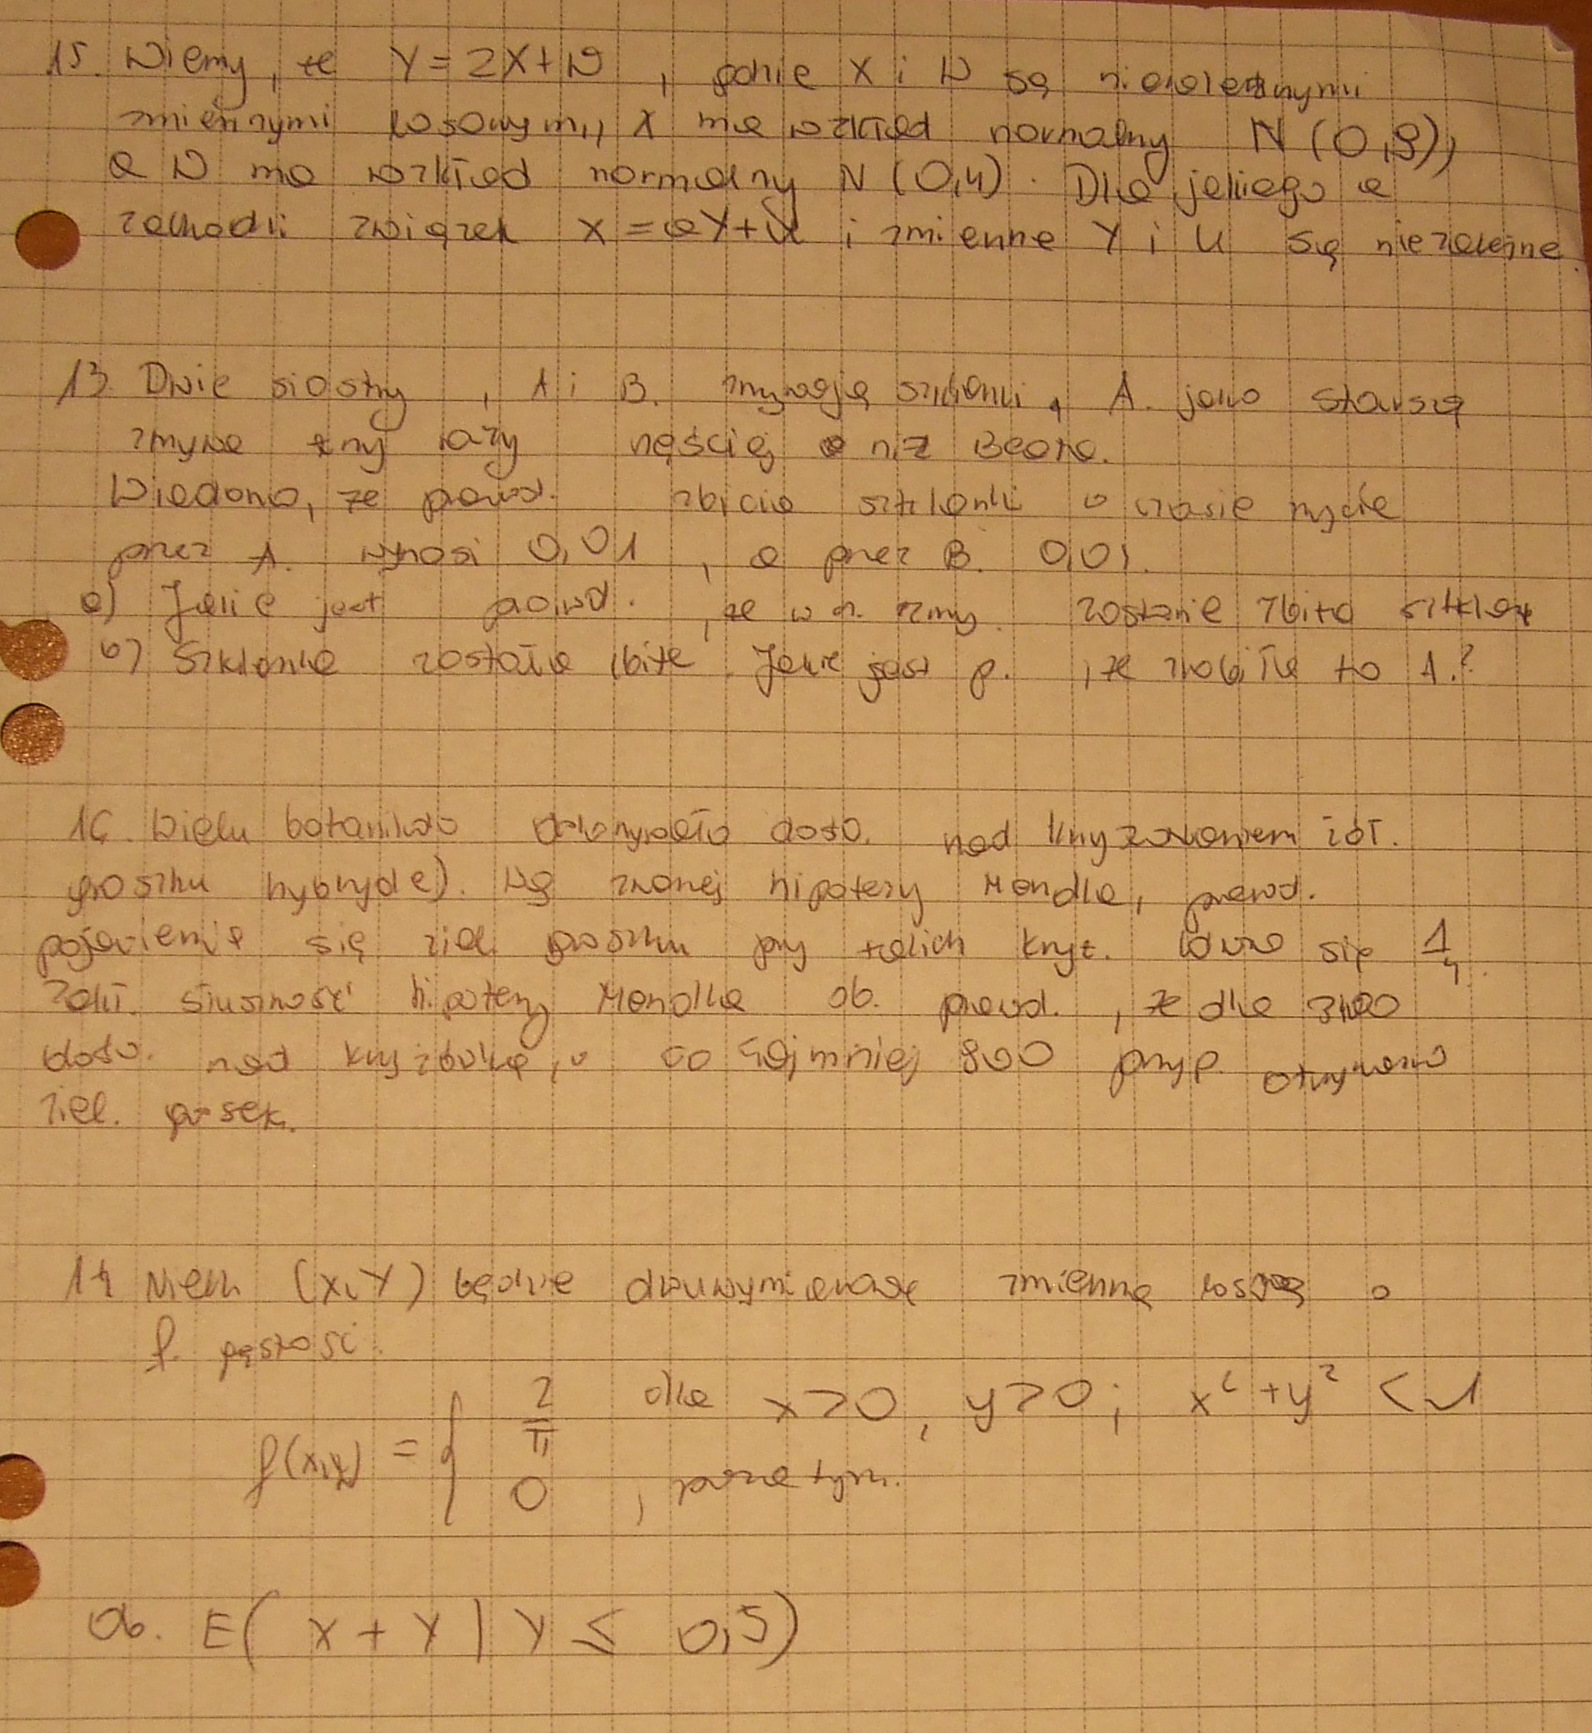 15. Wiemy, że Y = 2X + W, gdzie X i W są niezależnymi
zmiennymi losowymi, X ma rozkład normalny N (0,9),
a W ma rozkład normalny N (0,4). Dla jakiego a
zachodzi związek X = aY + U i zmienne Y i U są niezależne.
13. Dwie siostry, A i B. zmywają szklanki, A. jako starsza
zmywa trzy razy częściej niż Beata.
Wiadomo, że prawd. zbicia szklanki w czasie mycia
przez A. wynosi 0,01, a przez B. 0,01.
a) Jakie jest prawd., że w cz. zmy. zostanie zbita szklan
b) Szklanka została zbita. Jakie jest p., że zrobiła to A.?
16. Wielu botaników dokonywało dośw. nad krzyżowaniem żół.
groszku hybryde). Wg znanej hipotezy Mendla, prawd.
pojawienia się ziel. groszku przy takich krzyż. równa się 1/4.
Zakł. słuszność hipotezy Mendla ob. prawd., że dla 3400
dośw. nad krzyżówką, w co najmniej 800 przyp. otrzymano
ziel. groszek.
14 Niech (X,Y) będzie dwuwymiarową zmienną losową o
f. gęstości:
f(x,y) = { 2/π dla x>0, y>0; x² + y² < 1
0, poza tym.
Ob. E( X + Y | Y ≤ 0,5)